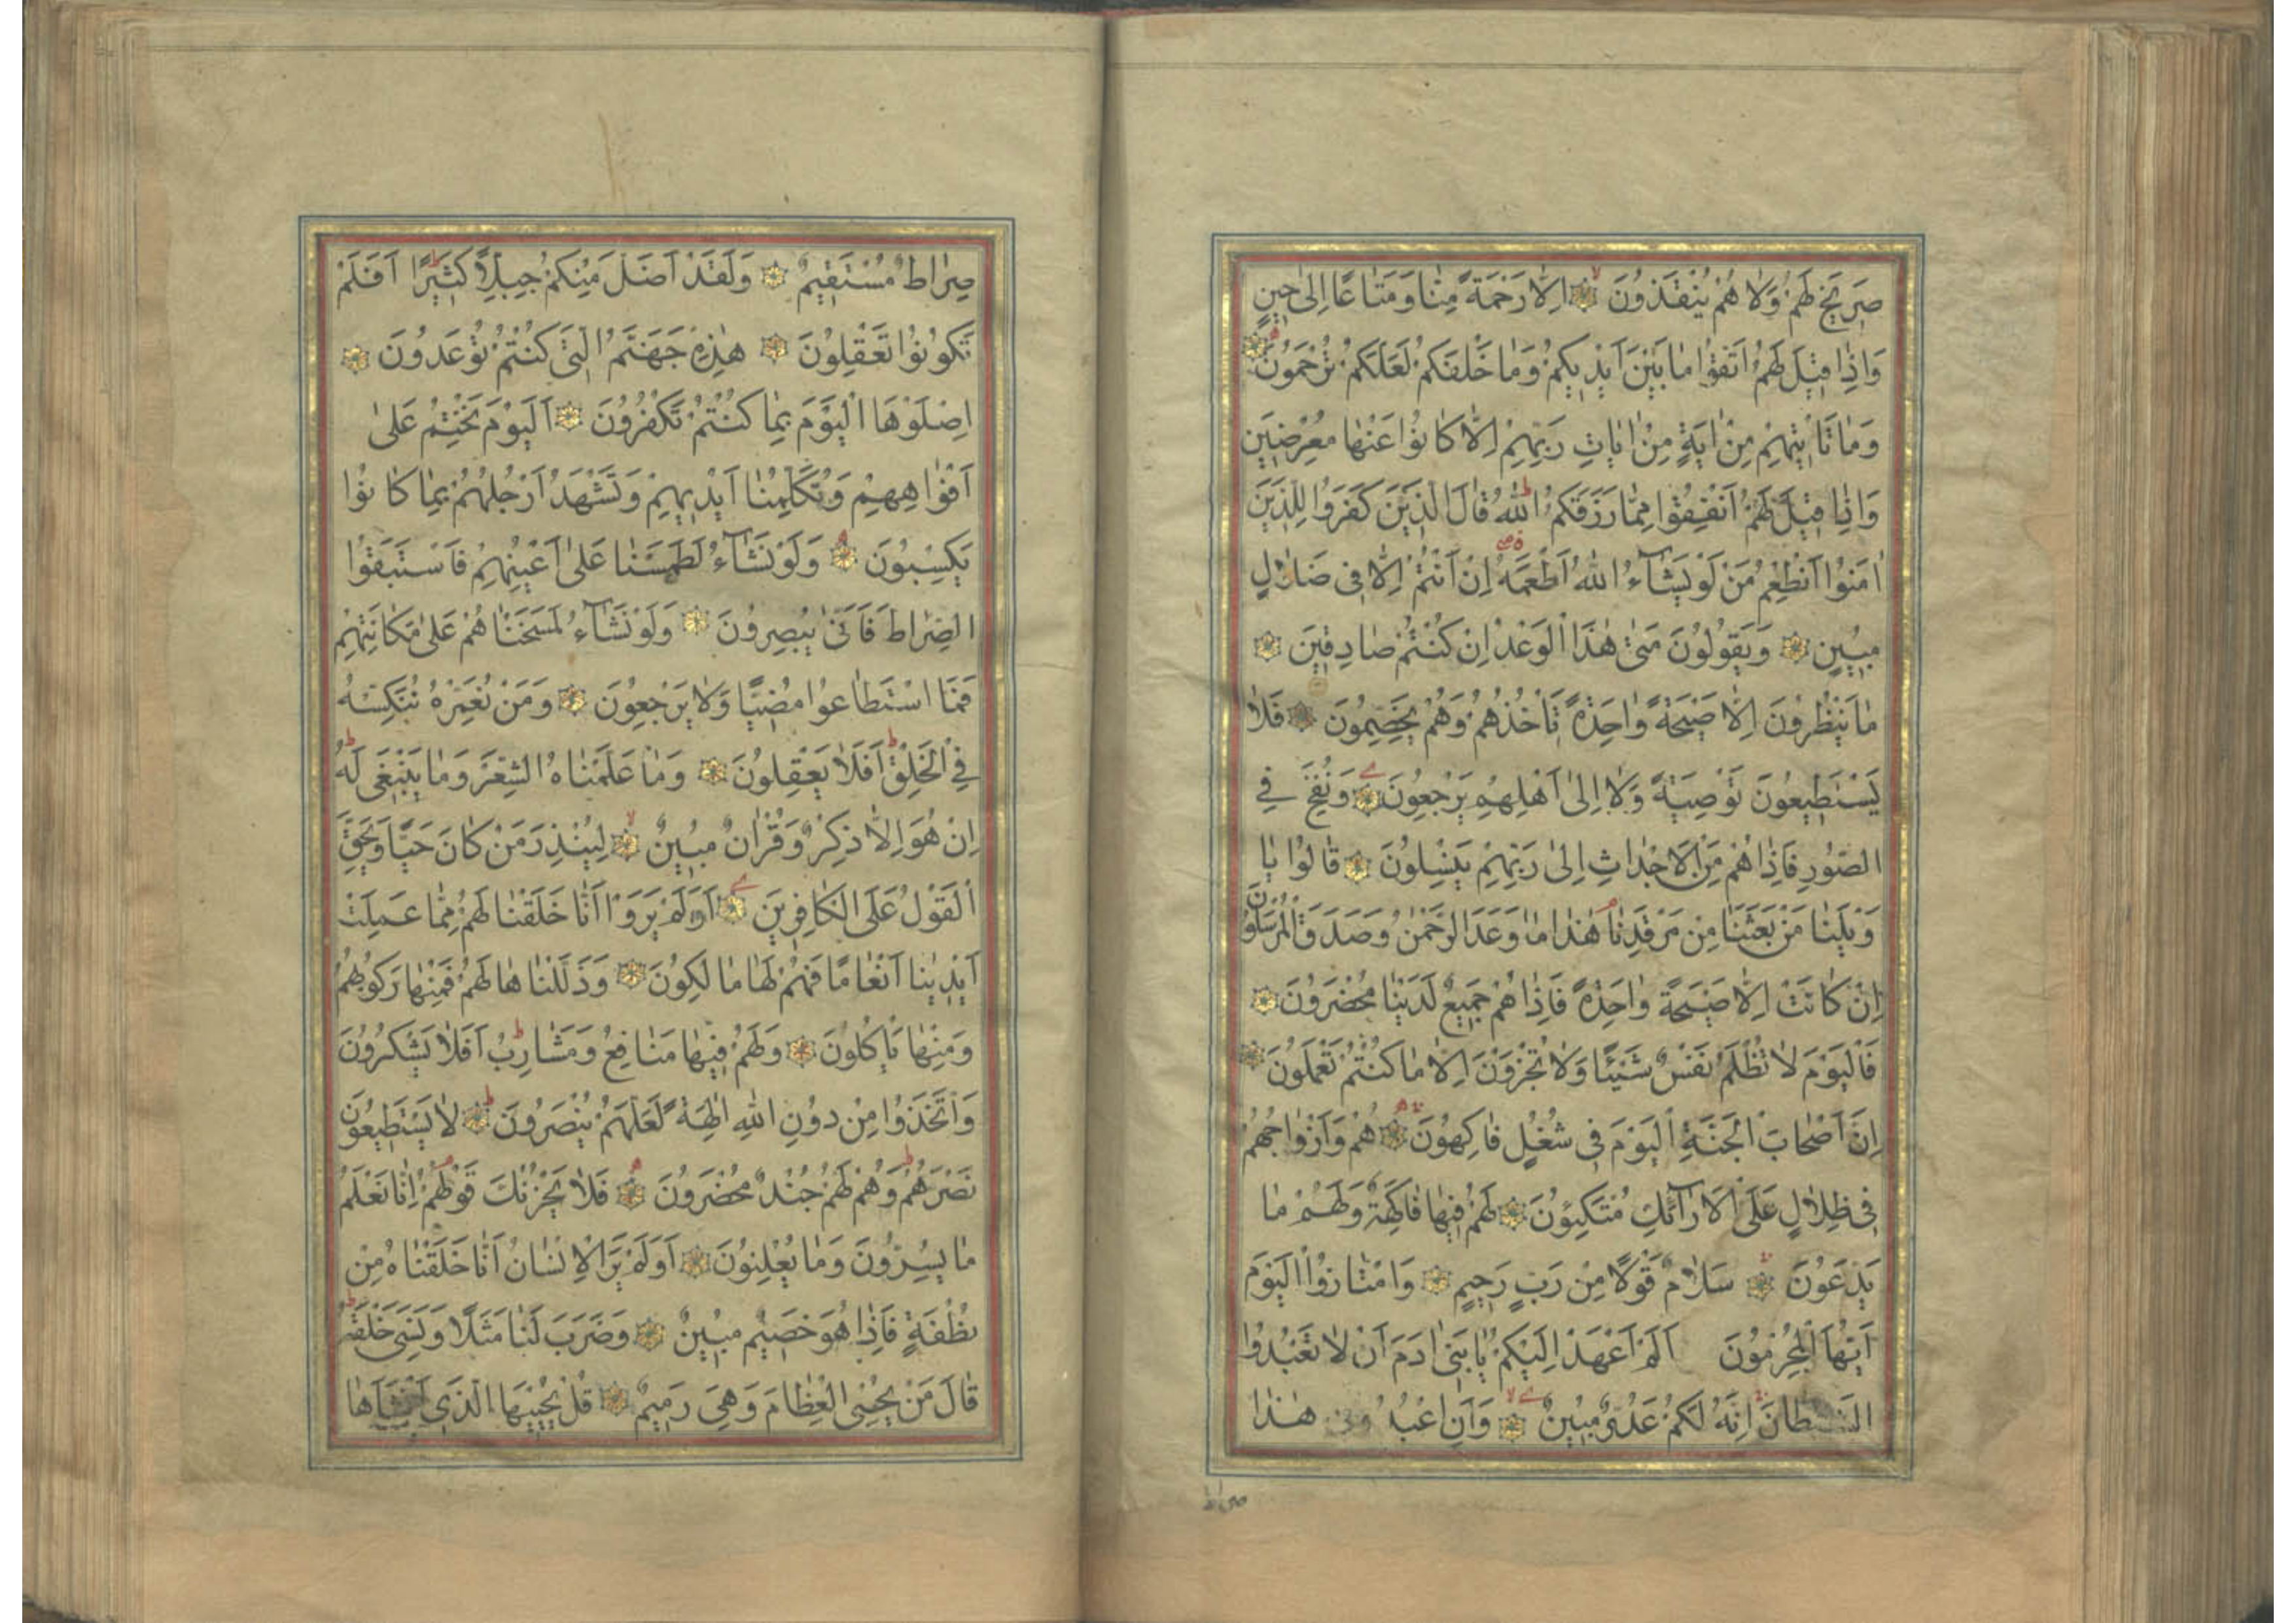 صَرِيخَ لَهُمْ وَلَا هُمْ يُنْقَذُونَ اِلَّا رَحْمَةً مِنَّا وَمَتَاعًا اِلٰى حِينٍ
وَاِذَا قِيلَ لَهُمُ اتَّقُوا مَا بَيْنَ اَيْدِيكُمْ وَمَا خَلْفَكُمْ لَعَلَّكُمْ تُرْحَمُونَ
وَمَا تَأْتِيهِمْ مِنْ اٰيَةٍ مِنْ اٰيَاتِ رَبِّهِمْ اِلَّا كَانُوا عَنْهَا مُعْرِضِينَ
وَاِذَا قِيلَ لَهُمْ اَنْفِقُوا مِمَّا رَزَقَكُمُ اللّٰهُ قَالَ الَّذِينَ كَفَرُوا لِلَّذِينَ
اٰمَنُوا اَنُطْعِمُ مَنْ لَوْ يَشَآءُ اللّٰهُ اَطْعَمَهُ اِنْ اَنْتُمْ اِلَّا فِى ضَلَالٍ
مُبِينٍ وَيَقُولُونَ مَتٰى هٰذَا الْوَعْدُ اِنْ كُنْتُمْ صَادِقِينَ
مَا يَنْظُرُونَ اِلَّا صَيْحَةً وَاحِدَةً تَأْخُذُهُمْ وَهُمْ يَخِصِّمُونَ فَلَا
يَسْتَطِيعُونَ تَوْصِيَةً وَلَا اِلٰى اَهْلِهِمْ يَرْجِعُونَ وَنُفِخَ فِى
الصُّورِ فَاِذَا هُمْ مِنَ الْاَجْدَاثِ اِلٰى رَبِّهِمْ يَنْسِلُونَ قَالُوا يَا
وَيْلَنَا مَنْ بَعَثَنَا مِنْ مَرْقَدِنَا هٰذَا مَا وَعَدَ الرَّحْمٰنُ وَصَدَقَ الْمُرْسَلُونَ
اِنْ كَانَتْ اِلَّا صَيْحَةً وَاحِدَةً فَاِذَا هُمْ جَمِيعٌ لَدَيْنَا مُحْضَرُونَ
فَالْيَوْمَ لَا تُظْلَمُ نَفْسٌ شَيْئًا وَلَا تُجْزَوْنَ اِلَّا مَا كُنْتُمْ تَعْمَلُونَ
اِنَّ اَصْحَابَ الْجَنَّةِ الْيَوْمَ فِى شُغُلٍ فَاكِهُونَ هُمْ وَاَزْوَاجُهُمْ
فِى ظِلَالٍ عَلَى الْاَرَآئِكِ مُتَّكِئُونَ لَهُمْ فِيهَا فَاكِهَةٌ وَلَهُمْ مَا
يَدَّعُونَ سَلَامٌ قَوْلًا مِنْ رَبٍّ رَحِيمٍ وَامْتَازُوا الْيَوْمَ
اَيُّهَا الْمُجْرِمُونَ اَلَمْ اَعْهَدْ اِلَيْكُمْ يَا بَنِى اٰدَمَ اَنْ لَا تَعْبُدُوا
الشَّيْطَانَ اِنَّهُ لَكُمْ عَدُوٌّ مُبِينٌ وَاَنِ اعْبُدُونِى هٰذَا
صراط
صِرَاطٌ مُسْتَقِيمٌ وَلَقَدْ اَضَلَّ مِنْكُمْ جِبِلًّا كَثِيرًا اَفَلَمْ
تَكُونُوا تَعْقِلُونَ هٰذِهِ جَهَنَّمُ الَّتِى كُنْتُمْ تُوعَدُونَ
اِصْلَوْهَا الْيَوْمَ بِمَا كُنْتُمْ تَكْفُرُونَ اَلْيَوْمَ نَخْتِمُ عَلٰى
اَفْوَاهِهِمْ وَتُكَلِّمُنَا اَيْدِيهِمْ وَتَشْهَدُ اَرْجُلُهُمْ بِمَا كَانُوا
يَكْسِبُونَ وَلَوْ نَشَآءُ لَطَمَسْنَا عَلٰى اَعْيُنِهِمْ فَاسْتَبَقُوا
الصِّرَاطَ فَاَنّٰى يُبْصِرُونَ وَلَوْ نَشَآءُ لَمَسَخْنَاهُمْ عَلٰى مَكَانَتِهِمْ
فَمَا اسْتَطَاعُوا مُضِيًّا وَلَا يَرْجِعُونَ وَمَنْ نُعَمِّرْهُ نُنَكِّسْهُ
فِى الْخَلْقِ اَفَلَا يَعْقِلُونَ وَمَا عَلَّمْنَاهُ الشِّعْرَ وَمَا يَنْبَغِى لَهُ
اِنْ هُوَ اِلَّا ذِكْرٌ وَقُرْاٰنٌ مُبِينٌ لِيُنْذِرَ مَنْ كَانَ حَيًّا وَيَحِقَّ
الْقَوْلُ عَلَى الْكَافِرِينَ اَوَلَمْ يَرَوْا اَنَّا خَلَقْنَا لَهُمْ مِمَّا عَمِلَتْ
اَيْدِينَا اَنْعَامًا فَهُمْ لَهَا مَالِكُونَ وَذَلَّلْنَاهَا لَهُمْ فَمِنْهَا رَكُوبُهُمْ
وَمِنْهَا يَأْكُلُونَ وَلَهُمْ فِيهَا مَنَافِعُ وَمَشَارِبُ اَفَلَا يَشْكُرُونَ
وَاتَّخَذُوا مِنْ دُونِ اللّٰهِ اٰلِهَةً لَعَلَّهُمْ يُنْصَرُونَ لَا يَسْتَطِيعُونَ
نَصْرَهُمْ وَهُمْ لَهُمْ جُنْدٌ مُحْضَرُونَ فَلَا يَحْزُنْكَ قَوْلُهُمْ اِنَّا نَعْلَمُ
مَا يُسِرُّونَ وَمَا يُعْلِنُونَ اَوَلَمْ يَرَ الْاِنْسَانُ اَنَّا خَلَقْنَاهُ مِنْ
نُطْفَةٍ فَاِذَا هُوَ خَصِيمٌ مُبِينٌ وَضَرَبَ لَنَا مَثَلًا وَنَسِىَ خَلْقَهُ
قَالَ مَنْ يُحْيِى الْعِظَامَ وَهِىَ رَمِيمٌ قُلْ يُحْيِيهَا الَّذِى اَنْشَاَهَا